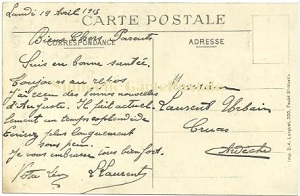 Lundi 19 Avril 1915
CARTE POSTALE
Biens Chers Parents
CORRESPONDANCE
ADRESSE
Suis en bonne santée.
Toujours au repos
J'ai reçu des bonnes nouvelles
d'Auguste. Il fait actuel-
lement un temps splendide
Ecrirez plus longuement
sous peu.
Je vous embrasse tous bien fort.
Votre
Laurent
Monsieur
Laurent Urbain
Cruas
Ardèche